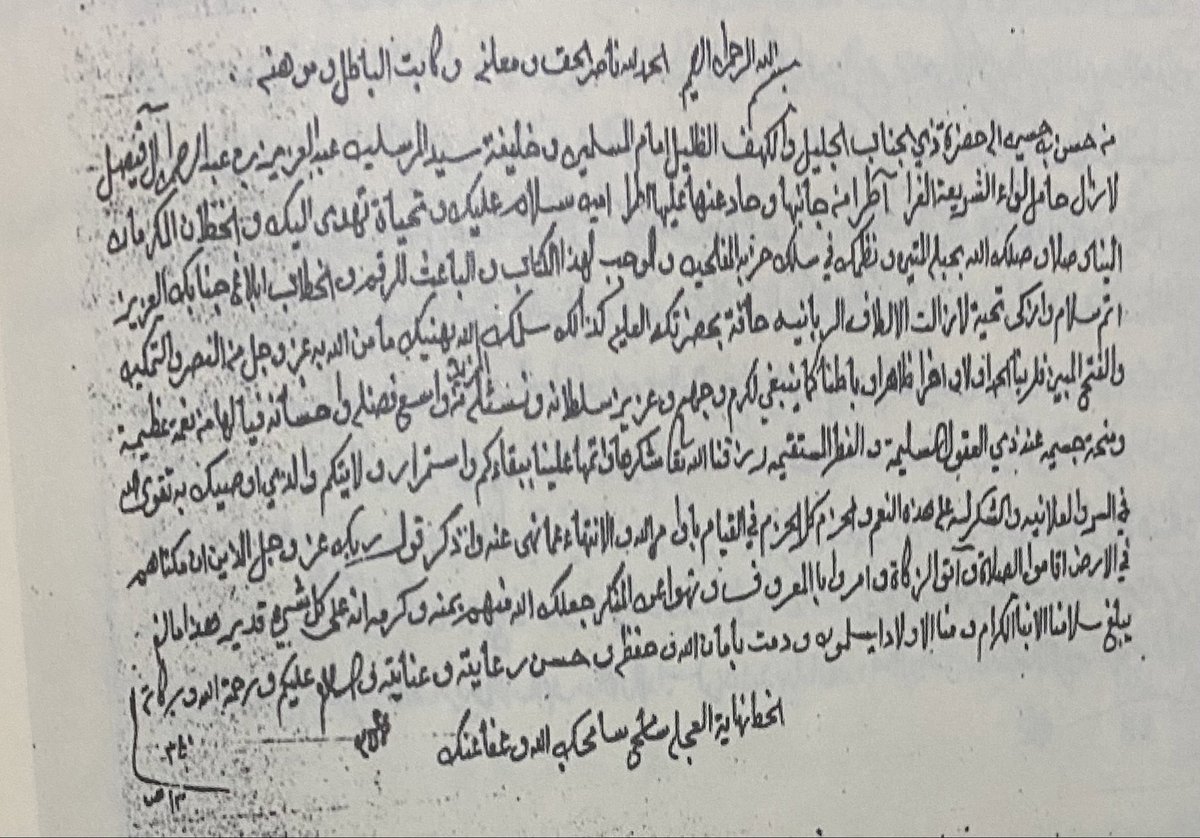 بسم الله الرحمن الرحيم الحمد لله ناصر الحق ومعليه وكابت الباطل وموهنه
من حسن بن حسين الى حضرة ذي الجناب الجليل والكهف الظليل امام المسلمين وخليفة سيد المرسلين عبد العزيز بن عبد الرحمن آل فيصل
لازال حاملا لواء الشريعة الغرا آطرا من جانبها وحاد عنها عليها اطرا امين سلام عليك وتحياة تهدى اليك والخط الكرمان
الينا وصلا وصلك الله بحبله المتين ونظمك في سلك حزبه المفلحين والموجب لهذا الكتاب والباعث للرقيم والخطاب ابلاغ جنابك العزيز
اتم سلام وازكى تحية لازالت الالطاف الربانيه حافة بحضرتك العليه كذالك سلمك الله يهنيك ما من الله به عز وجل من النصر والتمكين
والفتح المبين فلربنا الحمد اولا واخرا ظاهرا وباطنا كما ينبغي لكرم وجهه وعزيز سلطانه ونسئله المزيد من واسع فضله واحسانه فيالها من نعمة عظيمة
ومنحة جسيمه عند ذي العقول السليمة والفطر المستقيمه رزقنا الله تعا شكرها واتمها علينا ببقاءكم واستمرار ولايتكم والذي اوصيك به تقوى الله
في السر والعلانيه والشكر له على هذه النعم والحزم كل الحزم في القيام باوامر الله والانتهاء عما نهى عنه واذكر قول ربك عز وجل الذين ان مكناهم
في الارض اقاموا الصلاة وآتوا الزكاة وامروا بالمعروف ونهوا عن المنكر جعلك الله منهم بمنه وكرمه انه على كل شيء قدير هذا ما لزم
يبلغ سلامنا الابنا الكرام ومنا الاولاد يسلمون ودمت بامان الله وحفظه وحسن رعايته وعنايته والسلام عليكم ورحمة الله وبركاته
الخط نهاية العجله سامح سامحك الله وعفا عنك
١٣ ص